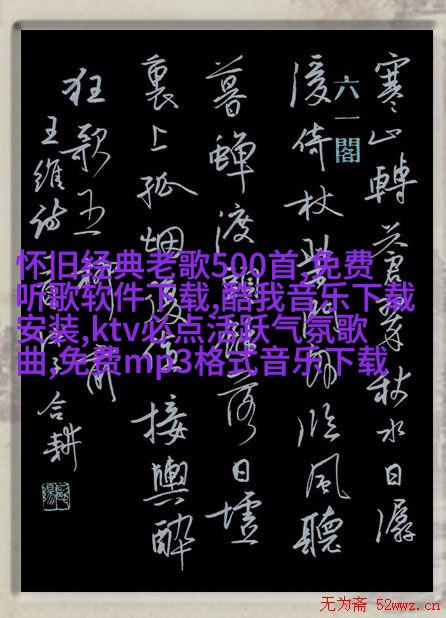 寒山轉蒼翠秋水日潺
六一閣
湲倚杖柴門外臨風聽
暮蟬渡頭餘落日墟
裏上孤烟復值接輿醉
狂歌五柳前
王維詩
合耕
怀旧经典老歌500首,免费
听歌软件下载,酷我音乐下载
安装,ktv必点活跃气氛歌
曲,免费mp3格式音乐下载
无为斋 52wwz.cn